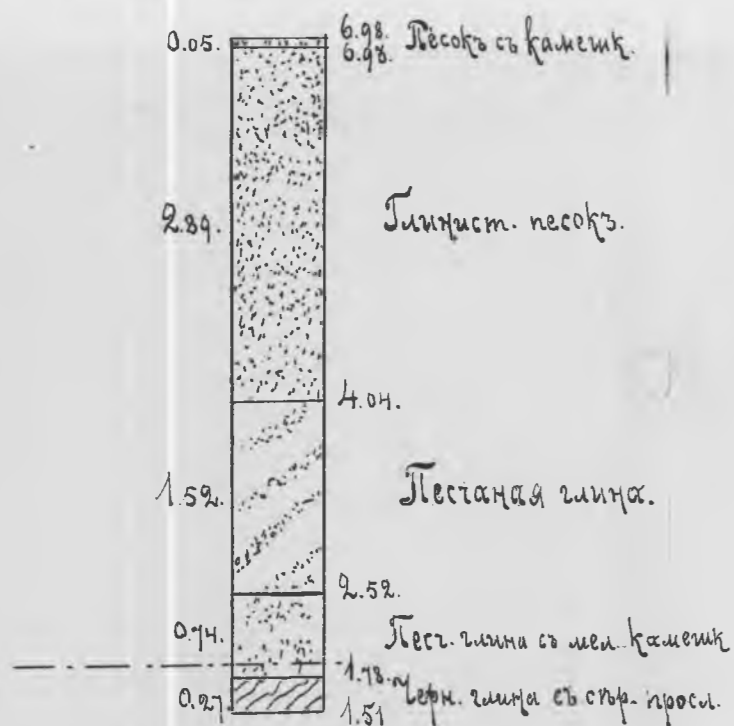 0.05.
6.98. Песокъ съ камешк.
6.93.
2.89. Глинист. песокъ.
4.04.
1.52. Песчаная глина.
2.52.
0.74. Песч. глина съ мел. камешк
1.78. Черн. глина съ сѣр. просл.
0.27. 1.51